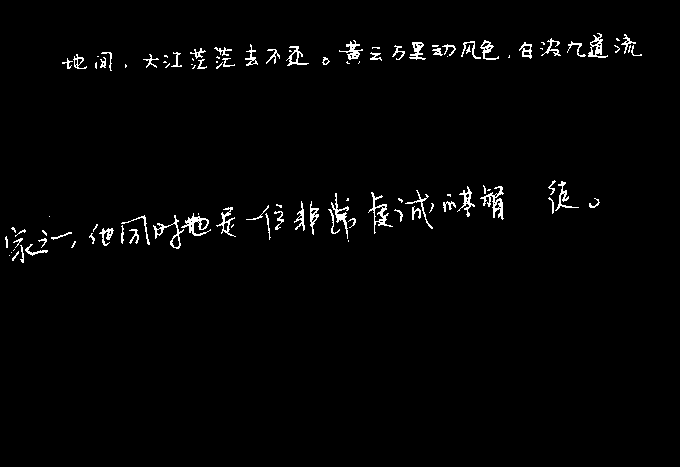 地间，大江茫茫去不还。黄云万里动风色，白波九道流
家之一，他同时也是一位非常虔诚的基督 徒。